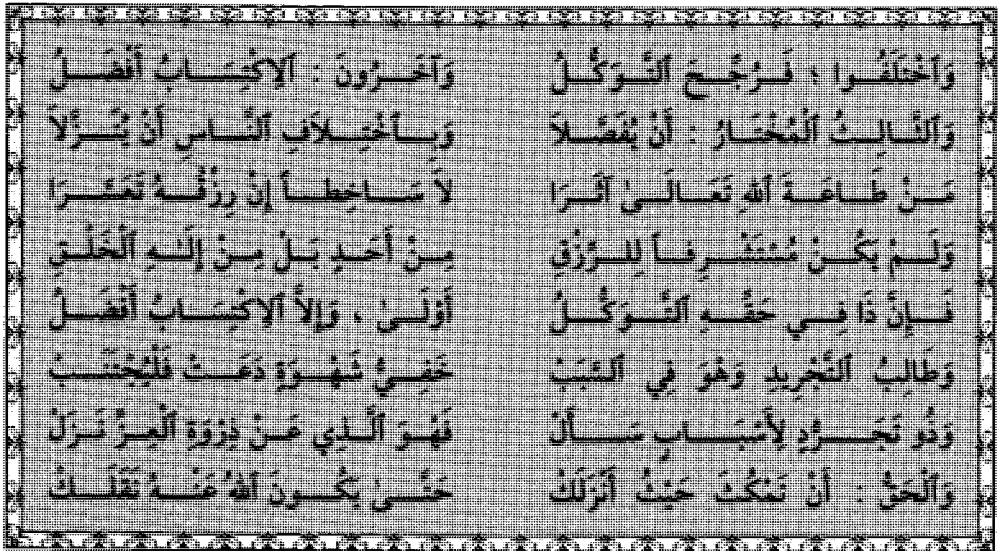 وَٱخْتَلَفُوا ؛ فَرُجِّحَ ٱلتَّوَكُّلُ وَآخَرُونَ : ٱلِاكْتِسَابُ أَفْضَلُ
وَٱلثَّالِثُ ٱلْمُخْتَارُ : أَنْ يُفَصَّلاَ وَبِٱخْتِلاَفِ ٱلنَّاسِ أَنْ يُنَزَّلاَ
مَنْ طَاعَةَ ٱللهِ تَعَالَىٰ آثَرَا لاَ سَاخِطاً إِنْ رِزْقُهُ تَعَسَّرَا
وَلَمْ يَكُنْ مُسْتَشْرِفاً لِلرِّزْقِ مِنْ أَحَدٍ بَلْ مِنْ إِلَـٰهِ ٱلْخَلْقِ
فَإِنَّ ذَا فِي حَقِّهِ ٱلتَّوَكُّلُ أَوْلَىٰ ، وَإِلاَّ ٱلِاكْتِسَابُ أَفْضَلُ
وَطَالِبُ ٱلتَّجْرِيدِ وَهْوَ فِي ٱلسَّبَبْ خَفِيُّ شَهْوَةٍ دَعَتْ فَلْيُجْتَنَبْ
وَذُو تَجَرُّدٍ لِأَسْبَابٍ سَأَلْ فَهْوَ ٱلَّذِي عَنْ ذِرْوَةِ ٱلْعِزِّ نَزَلْ
وَٱلْحَقُّ : أَنْ تَمْكُثَ حَيْثُ أَنْزَلَكْ حَتَّىٰ يَكُونَ ٱللهُ عَنْهُ نَقَلَكْ